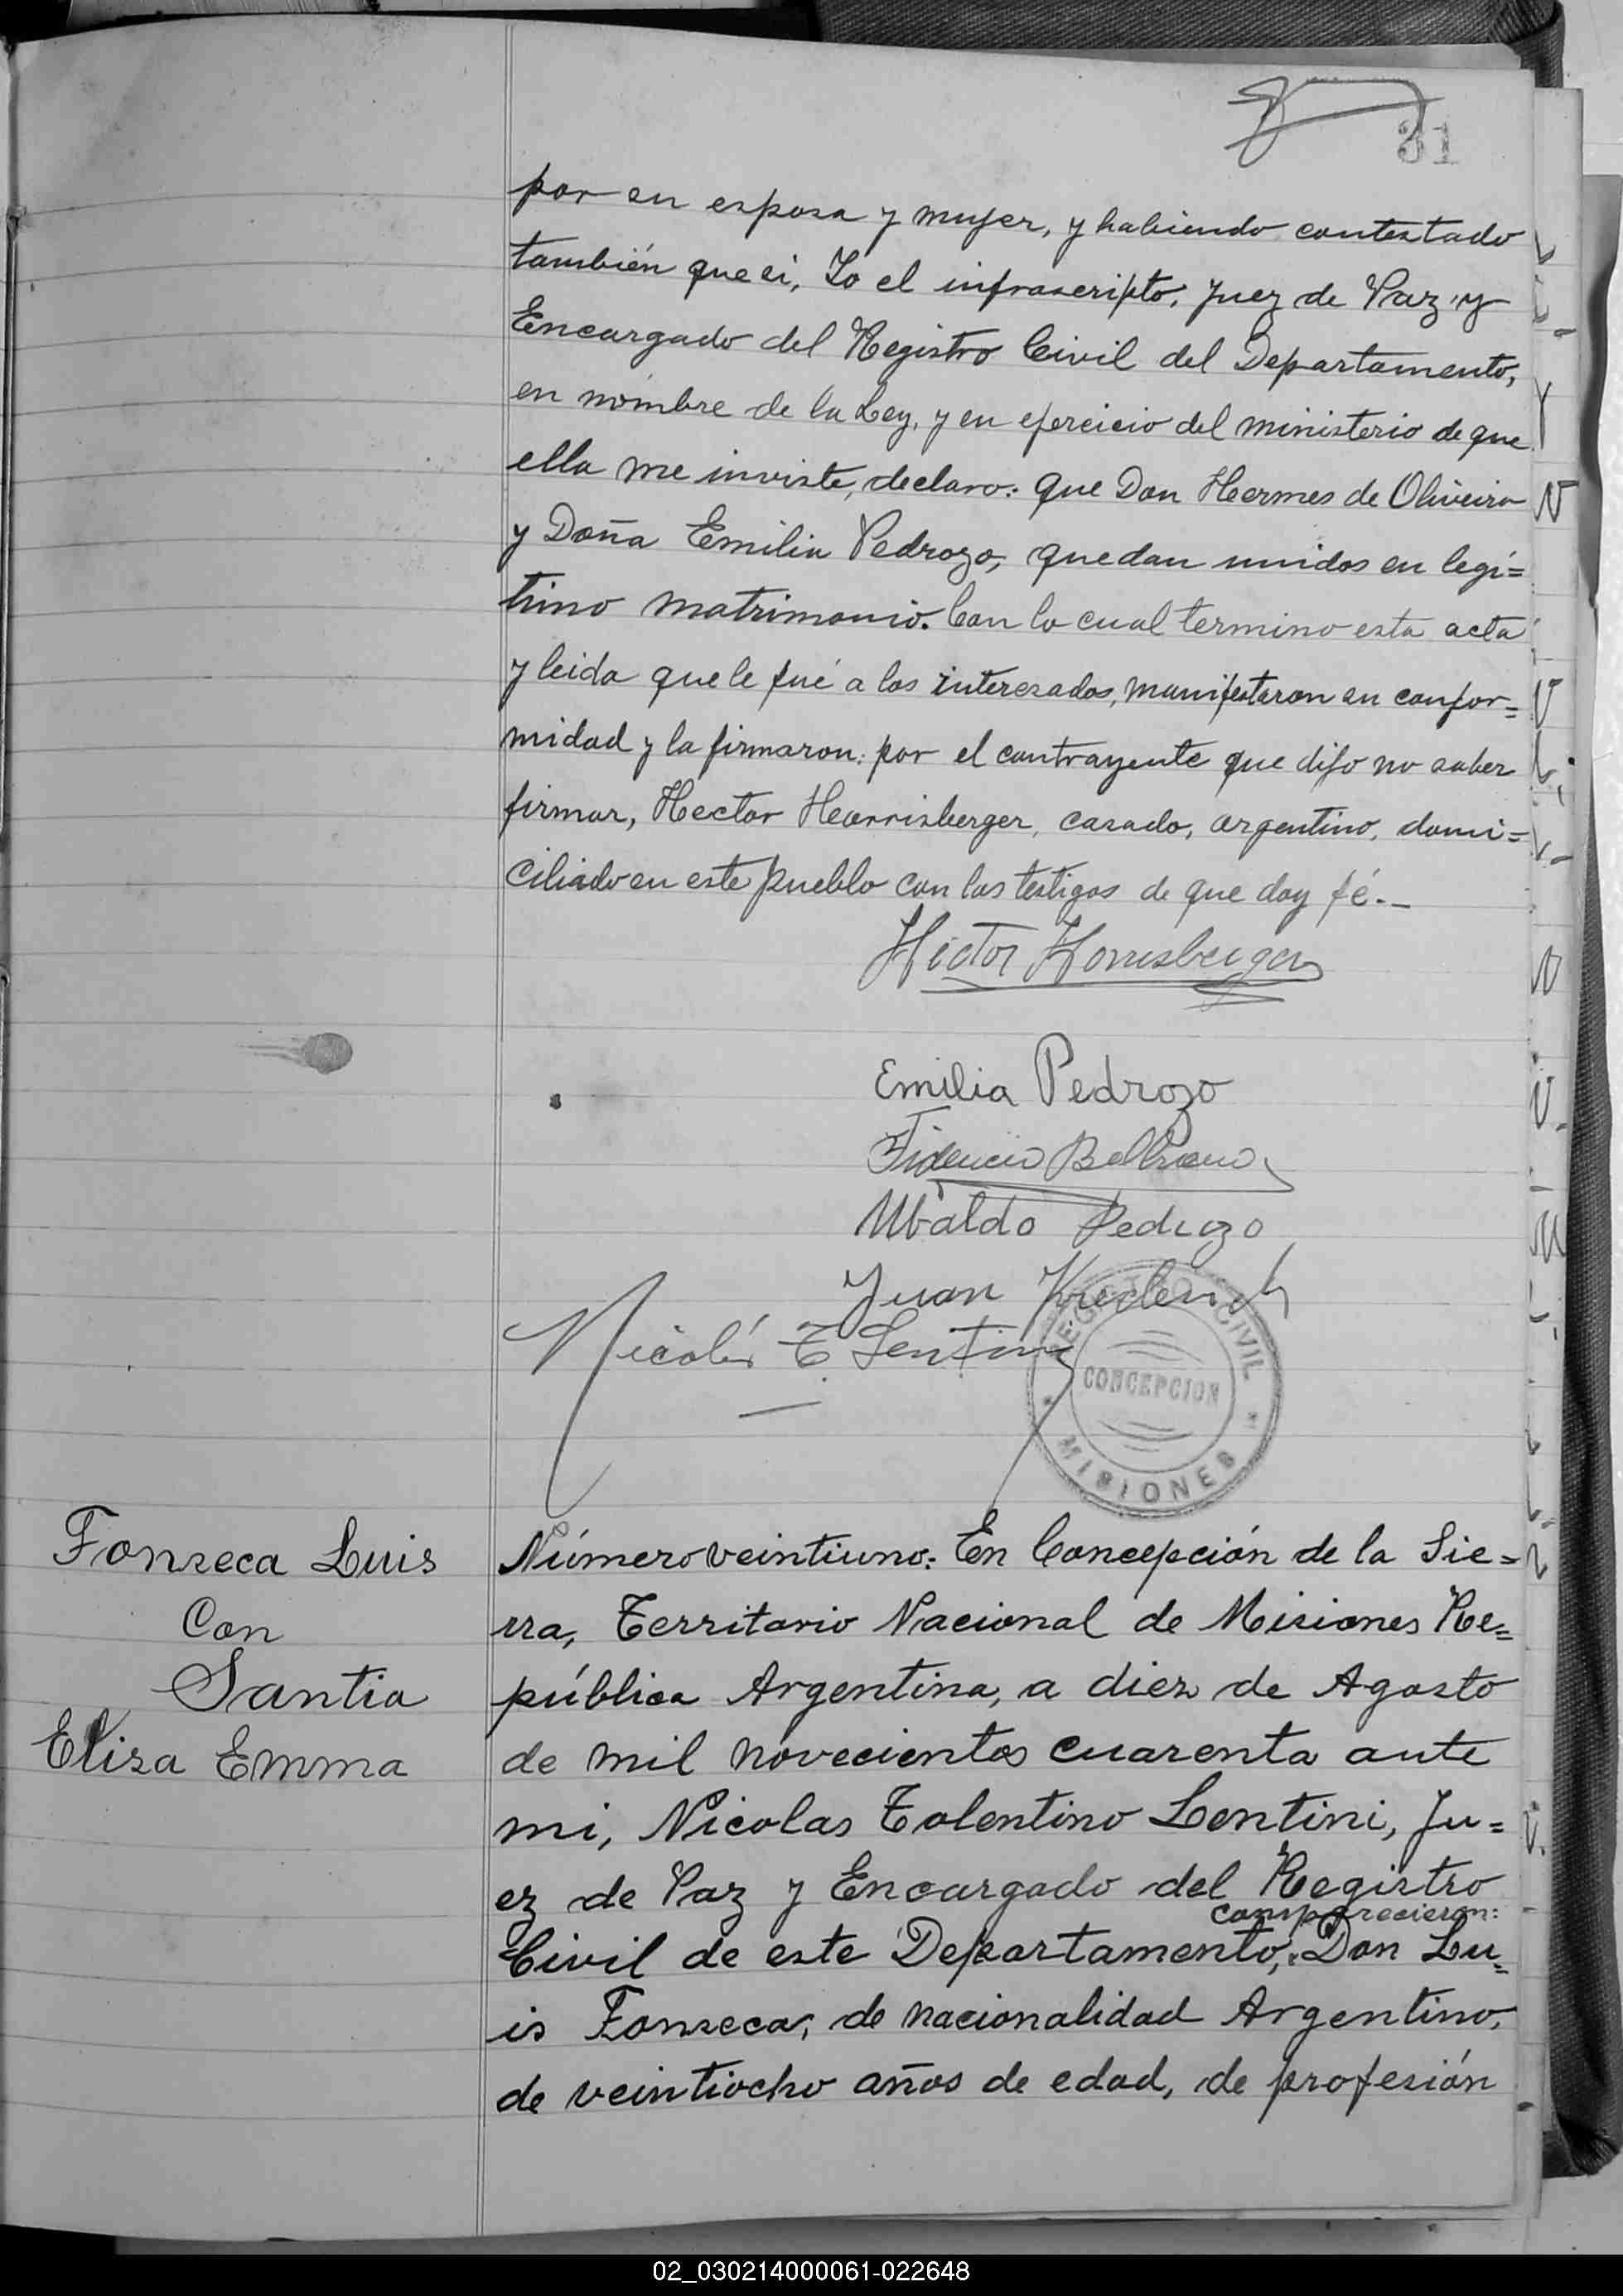 31
por su esposa y mujer, y habiendo contestado
también que si, Yo el infrascripto, Juez de Paz y
Encargado del Registro Civil del Departamento,
en nombre de la Ley, y en ejercicio del ministerio de que
ella me inviste, declaro: que Don Hermes de Oliveira
y Doña Emilia Pedrozo, quedan unidos en legí=
timo matrimonio. Con lo cual termino esta acta
y leida que le fué a los interesados, manifestaron su confor=
midad y la firmaron: por el contrayente que dijo no saber
firmar, Hector Horrisberger, casado, argentino, domi=
ciliado en este pueblo con los testigos de que doy fé.-
Hector Horrisberger
Emilia Pedrozo
Fidencio Beltrano
Ubaldo Pedrozo
Juan
Nicolás T. Lentini
REGISTRO CIVIL
CONCEPCION
MISIONES
Fonseca Luis
Con
Santia
Elisa Emma
Número veintiuno: En Concepción de la Sie=
rra, Territorio Nacional de Misiones Re=
pública Argentina, a diez de Agosto
de mil novecientos cuarenta ante
mi, Nicolas Tolentino Lentini, Ju=
ez de Paz y Encargado del Registro
comparecieron:
Civil de este Departamento, Don Lu=
is Fonseca, de nacionalidad Argentino,
de veintiocho años de edad, de profesión
02_030214000061-022648